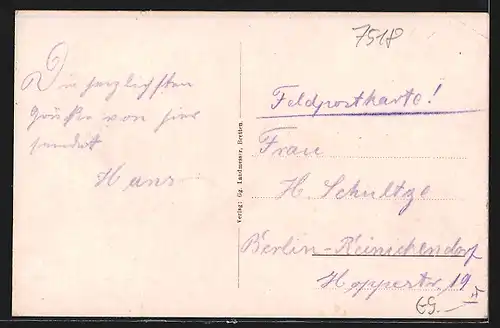 7518
Die herzlichsten
Grüße von hier
sendet
Hans
Verlag: Gg. Landmesser, Bretten.
Feldpostkarte!
Frau
H. Schultze
Berlin-Reinickendorf
Hopperstr. 19
II